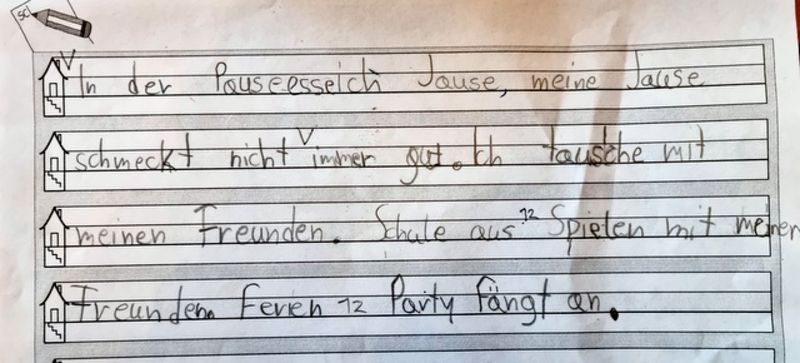 In der Pauseesseich Jause, meine Jause
schmeckt nicht immer gut. Ich tausche mit
meinen Freunden. Schule aus 12 Spielen mit meinen
Freunden. Ferien 12 Party fängt an.